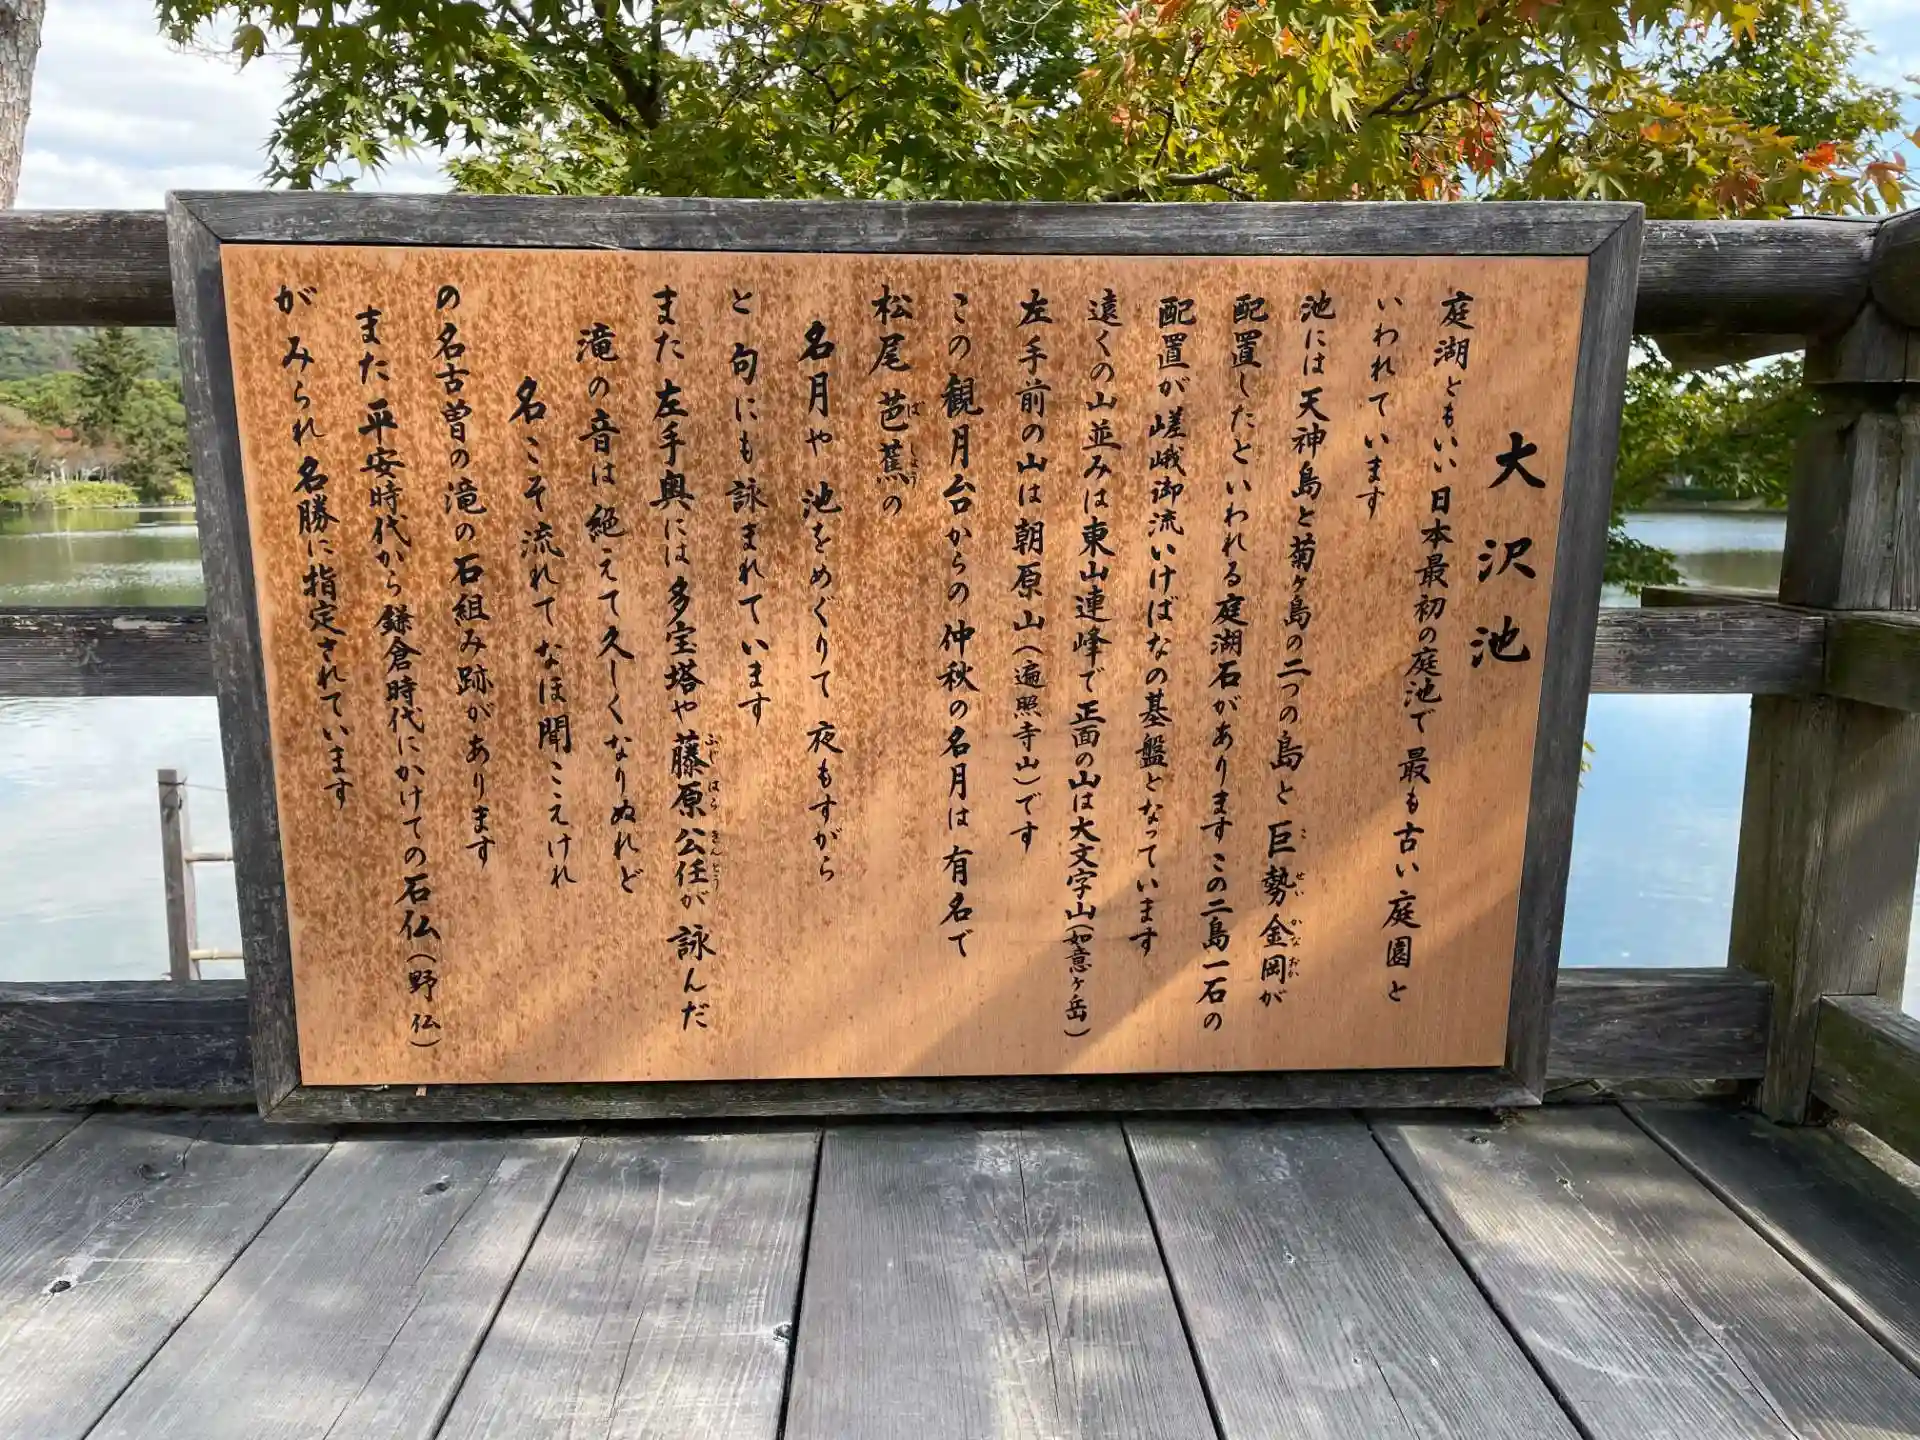 大沢池
庭湖ともいい日本最初の庭池で最も古い庭園と
いわれています
池には天神島と菊ヶ島の二つの島と巨勢金岡が
こ せい かな おか
配置したといわれる庭湖石がありますこの二島一石の
配置が嵯峨御流いけばなの基盤となっています
遠くの山並みは東山連峰で正面の山は大文字山(如意ヶ岳)
左手前の山は朝原山(遍照寺山)です
この観月台からの仲秋の名月は有名で
松尾芭蕉の
ば しょう
名月や池をめぐりて夜もすがら
と句にも詠まれています
また左手奥には多宝塔や藤原公任が詠んだ
ふじ はら きん とう
滝の音は絶えて久しくなりぬれど
名こそ流れてなほ聞こえけれ
の名古曽の滝の石組み跡があります
また平安時代から鎌倉時代にかけての石仏(野仏)
がみられ名勝に指定されています